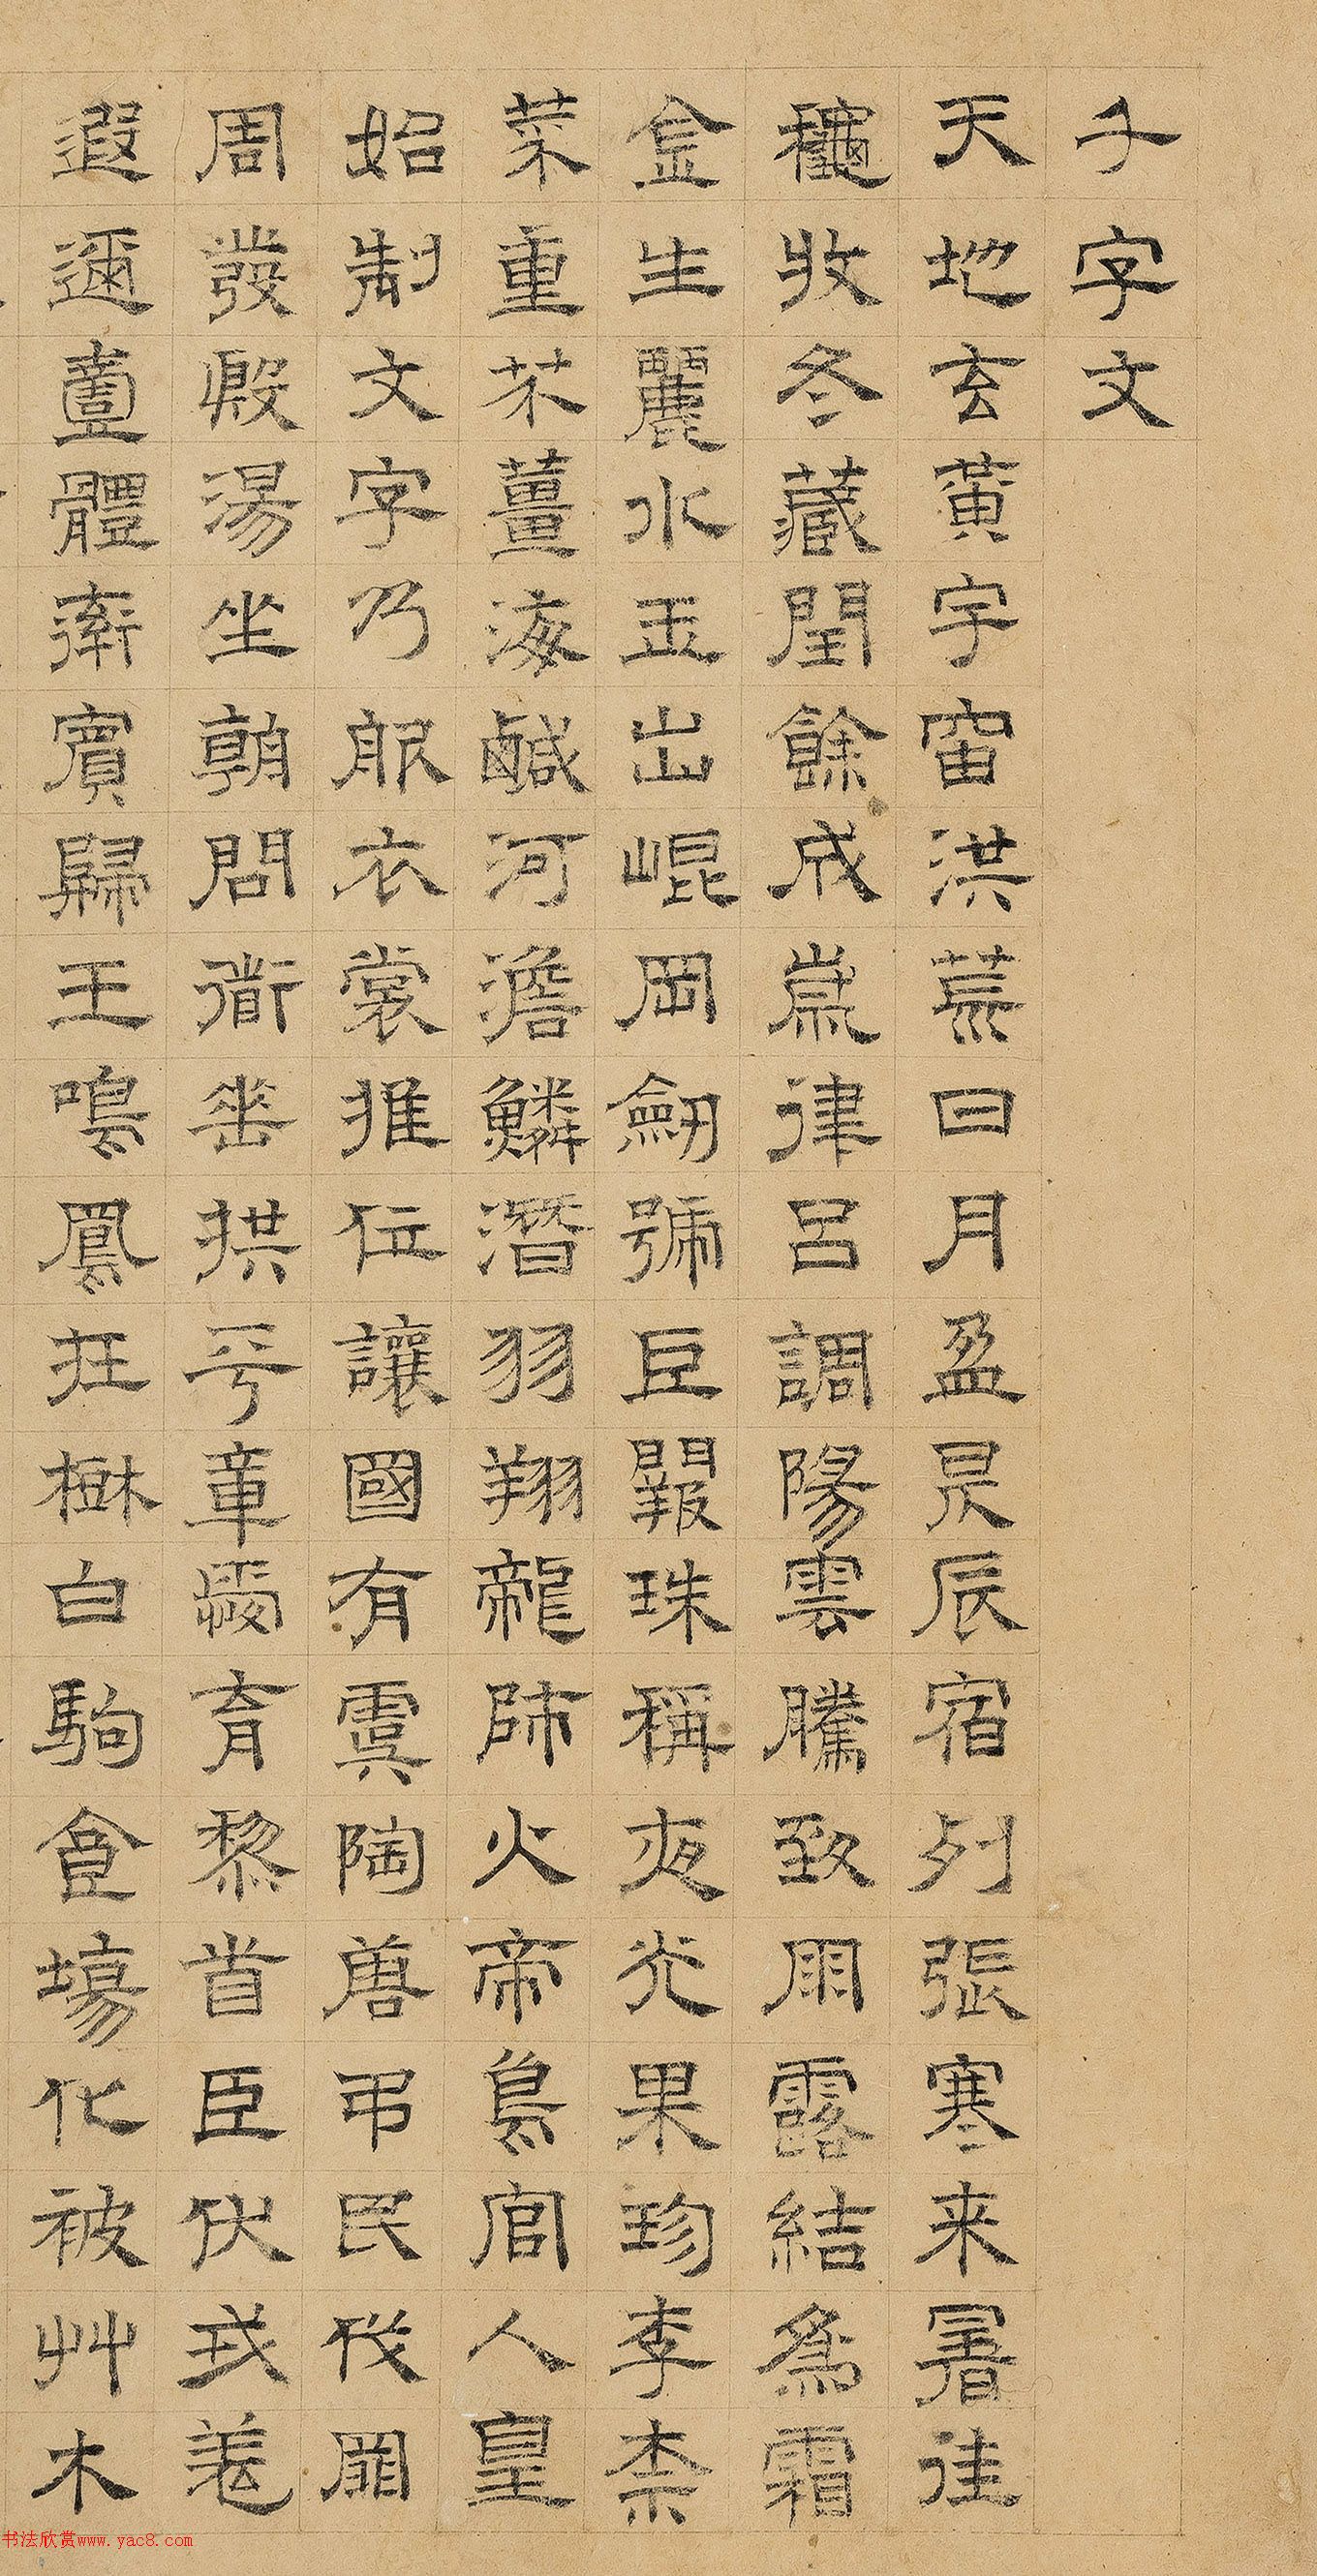 千字文
天地玄黃宇宙洪荒日月盈昃辰宿列張寒来暑往
穐收冬藏閏餘成歲律呂調陽雲騰致雨露結為霜
金生麗水玉出崐岡劒號巨闕珠稱夜光果珍李柰
菜重芥薑海鹹河澹鱗潛羽翔龍師火帝鳥官人皇
始制文字乃服衣裳推位讓國有虞陶唐弔民伐罪
周發殷湯坐朝問道垂拱平章愛育黎首臣伏戎羌
遐邇壹體率賓歸王鳴鳳在樹白駒食場化被艸木
书法欣赏www.yac8.com